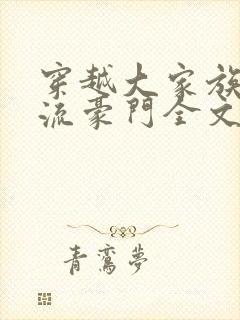 穿越大家族
流豪門全文
青鸞夢